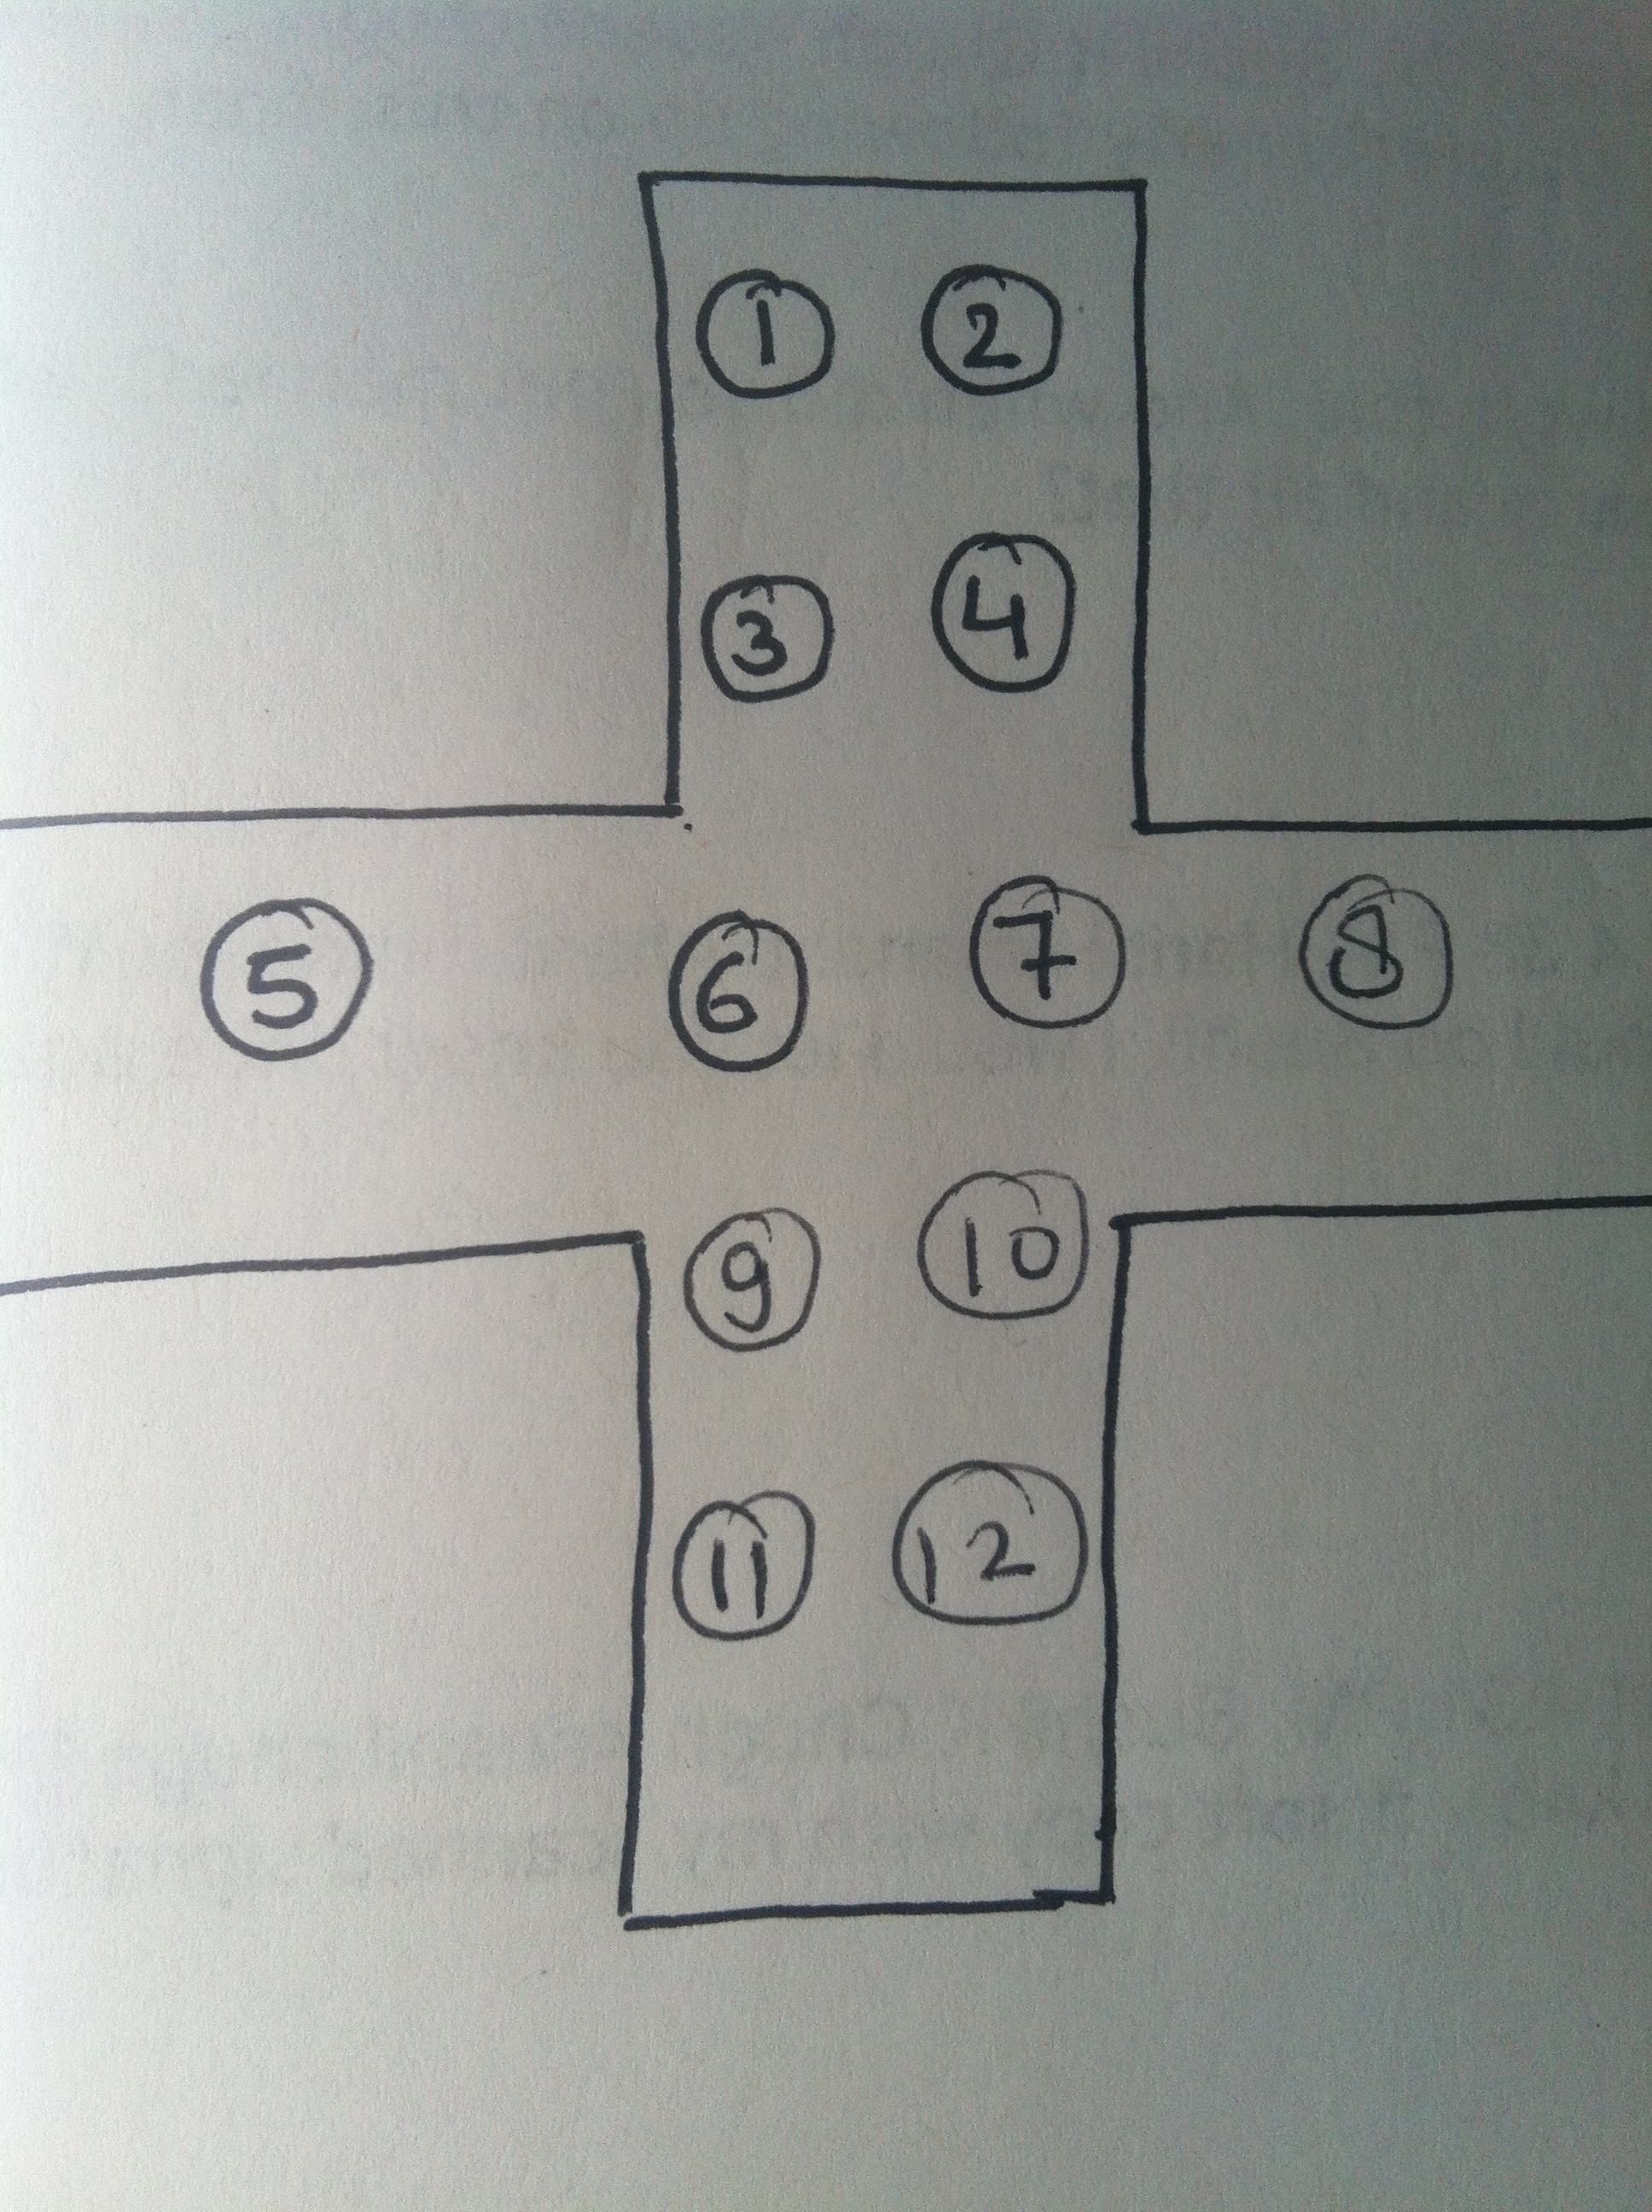 1 2
3 4
5 6 7 8
9 10
11 12